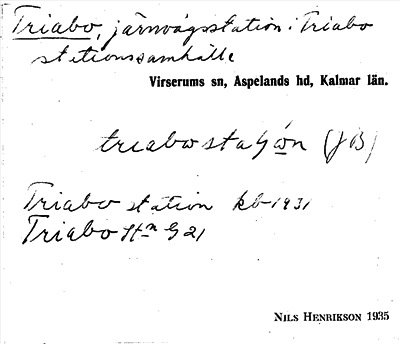 Triabo, järnvägsstation i Triabo
stationssamhälle
Virserums sn, Aspelands hd, Kalmar län.
triabostaʃo̲n (JB)
Triabo station kb 1931
Triabo Stn G 21
NILS HENRIKSON 1935